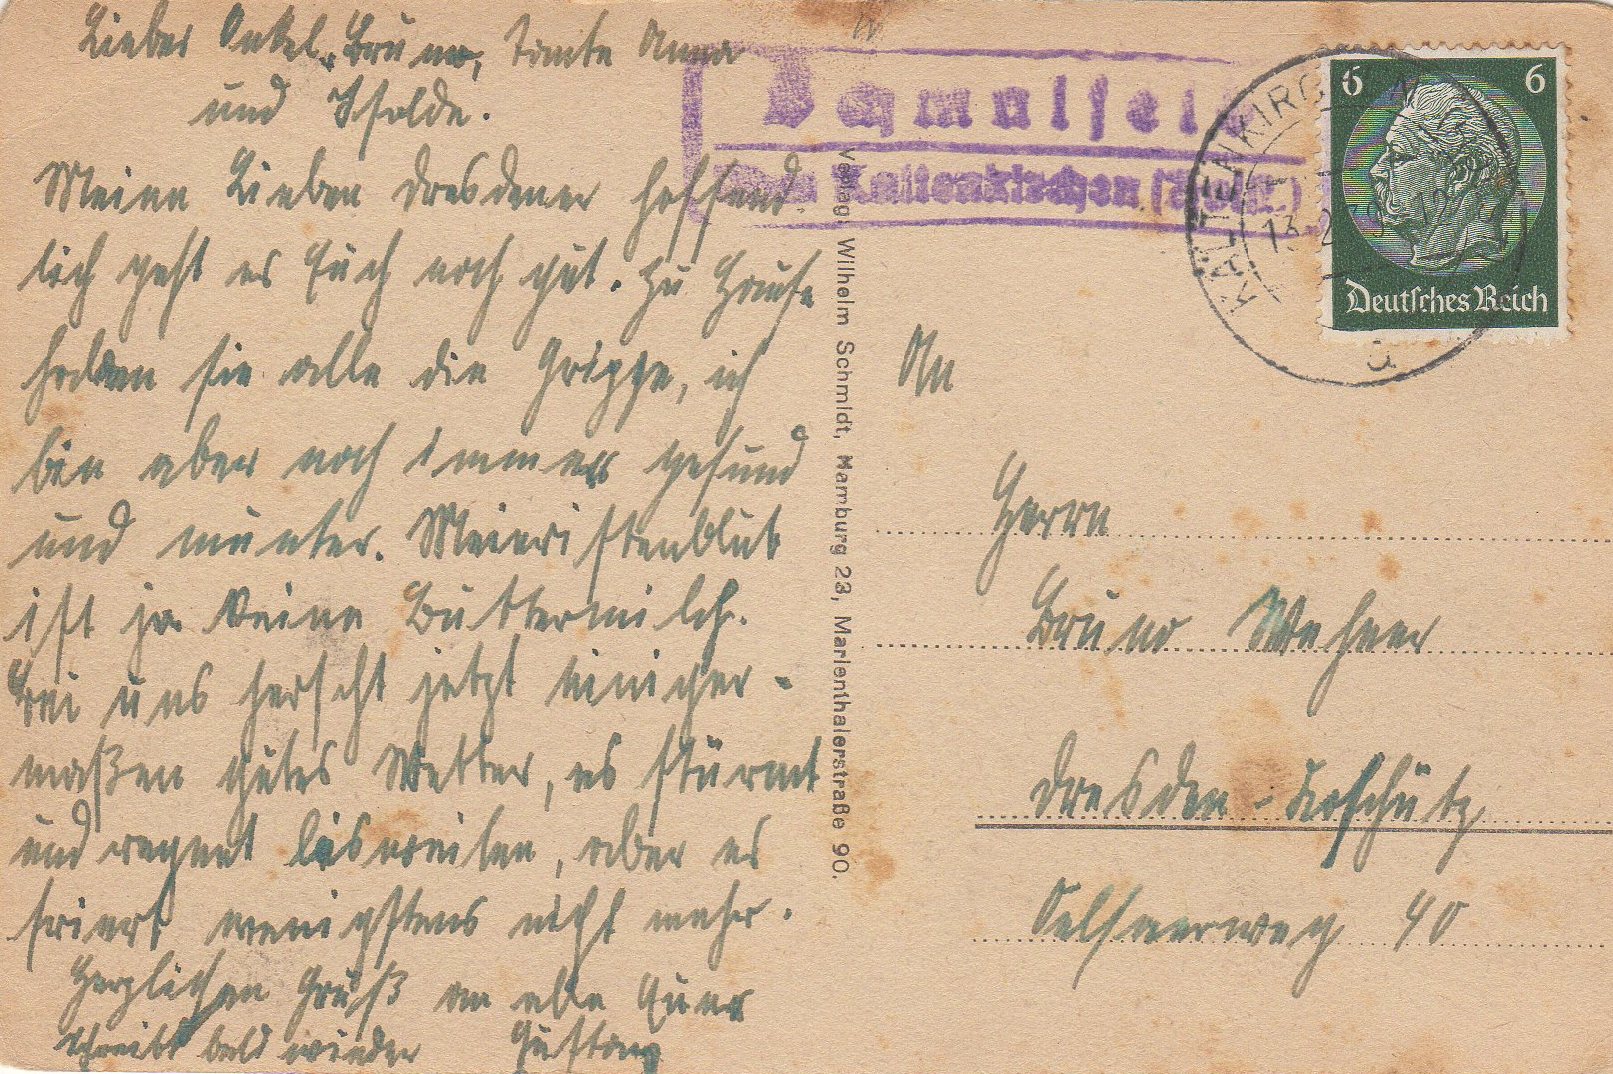 Lieber Onkel Bruno, Tante Anna
und Isolde.
Meine Lieben Dresdener hoffend
lich geht es Euch noch gut. Zu Hause
haben sie alle die Grippe, ich
bin aber noch immer gesund
und munter. Meieristenblut
ist ja keine Buttermilch.
Bei uns herscht jetzt einiger-
maßen gutes Wetter, es stürmt
und regnet bisweilen, aber es
friert wenigstens nicht mehr.
Herzlichen Gruß an alle Euer
Schreibt bald wieder Gustav
Verlag: Wilhelm Schmidt, Hamburg 23, Marienthalerstraße 90.
Kaltenkirchen (Holst.)
KALTENKIRCHEN
13. 2.
a
6 6
Deutsches Reich
An
Herrn
Bruno Wehner
Dresden-Coschütz
40